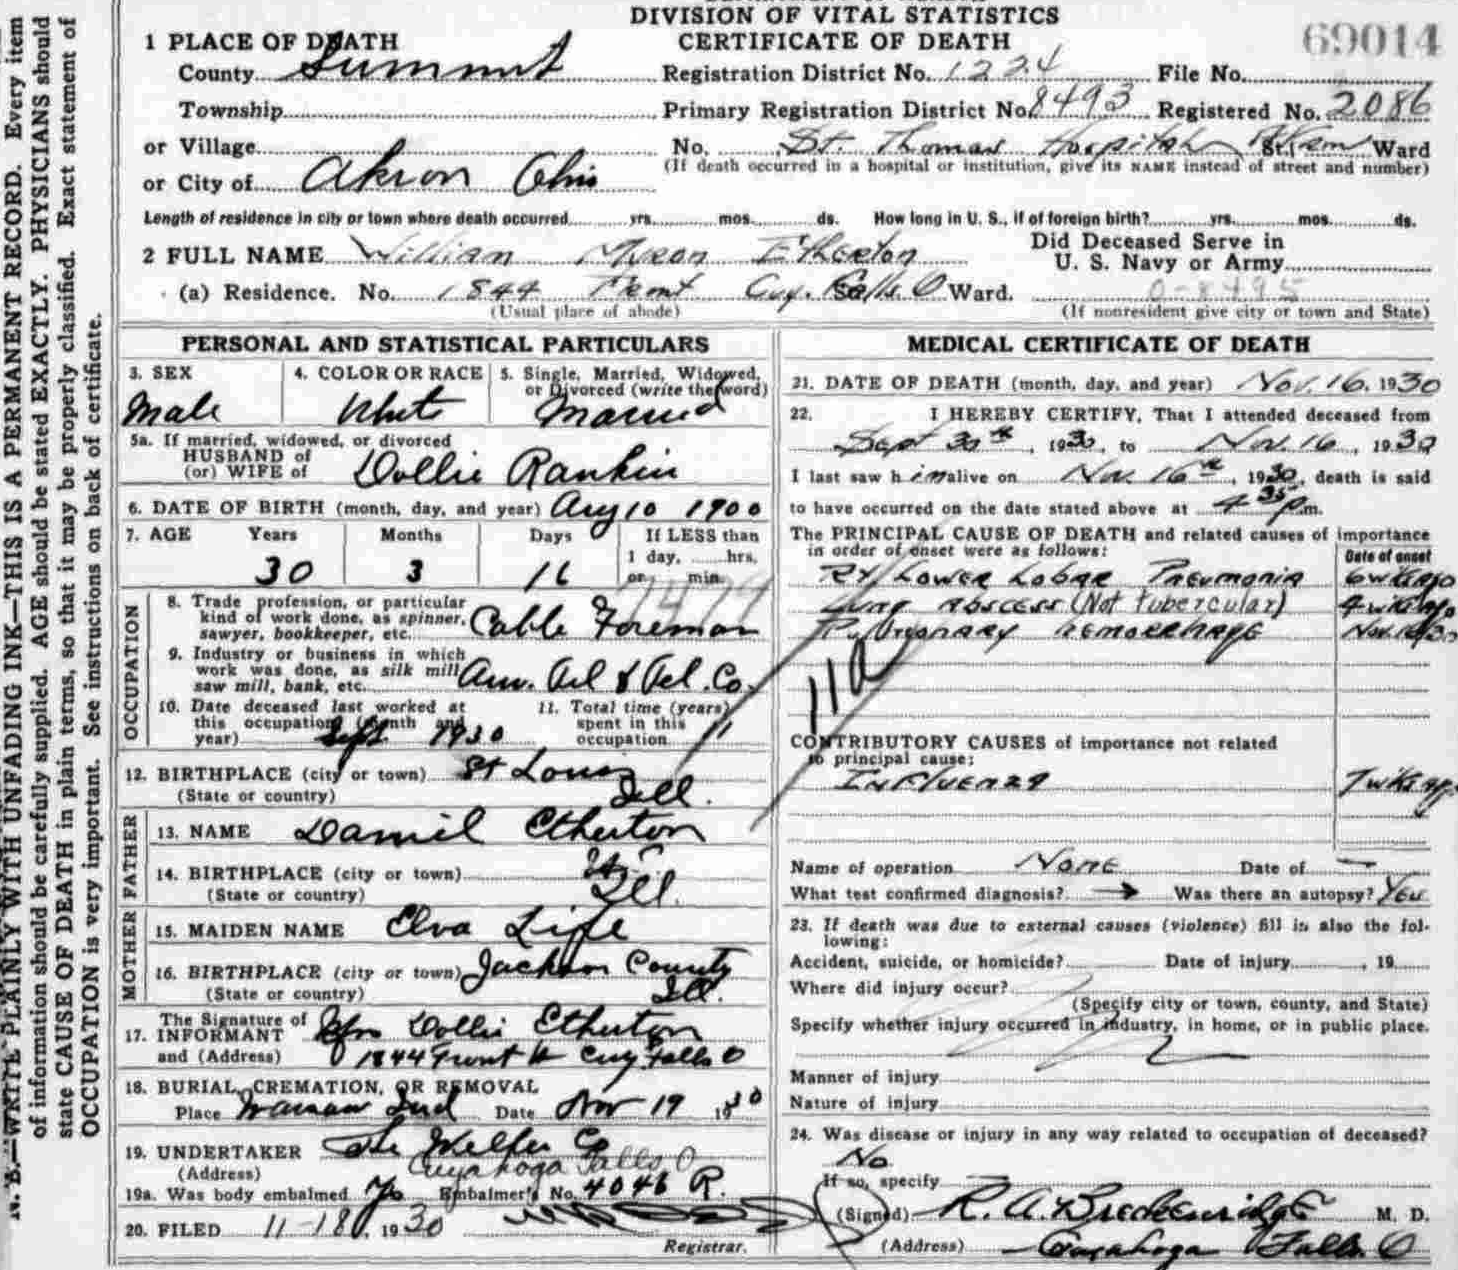 DIVISION OF VITAL STATISTICS
CERTIFICATE OF DEATH
69014
1 PLACE OF DEATH
County Summit Registration District No. 1224 File No.
Township Primary Registration District No. 8493 Registered No. 2086
or Village No. St. Thomas Hospital St. Ward
(If death occurred in a hospital or institution, give its NAME instead of street and number)
or City of Akron Ohio
Length of residence in city or town where death occurred yrs. mos. ds. How long in U. S., if of foreign birth? yrs. mos. ds.
2 FULL NAME William Myron Etherton Did Deceased Serve in U. S. Navy or Army
(a) Residence. No. 1844 Front Cuy. Falls. O Ward. 0-8495
(Usual place of abode) (If nonresident give city or town and State)
PERSONAL AND STATISTICAL PARTICULARS
3. SEX Male
4. COLOR OR RACE White
5. Single, Married, Widowed, or Divorced (write the word) Married
5a. If married, widowed, or divorced
HUSBAND of
(or) WIFE of Dollie Rankin
6. DATE OF BIRTH (month, day, and year) Aug 10 1900
7. AGE Years Months Days If LESS than
1 day, hrs.
30 3 16 or min.
7479
OCCUPATION
8. Trade profession, or particular
kind of work done, as spinner,
sawyer, bookkeeper, etc. Cable Foreman
9. Industry or business in which
work was done, as silk mill
saw mill, bank, etc. Am. Tel & Tel. Co.
10. Date deceased last worked at
this occupation (month and
year) Sept 1930
11. Total time (years)
spent in this
occupation 11
12. BIRTHPLACE (city or town) St Louis
(State or country) Ill.
FATHER
13. NAME Daniel Etherton
14. BIRTHPLACE (city or town)
(State or country) Ill.
MOTHER
15. MAIDEN NAME Elva Lipe
16. BIRTHPLACE (city or town) Jackson County
(State or country) Ill.
The Signature of
17. INFORMANT Mrs Dollie Etherton
and (Address) 1844 Front St Cuy Falls O
18. BURIAL, CREMATION, OR REMOVAL
Place Warsaw Ind Date Nov 19 1930
19. UNDERTAKER The Co
(Address) Cuyahoga Falls O
19a. Was body embalmed Embalmer's No. 4046 R.
20. FILED 11-18, 1930
Registrar.
MEDICAL CERTIFICATE OF DEATH
21. DATE OF DEATH (month, day, and year) Nov. 16, 1930
22. I HEREBY CERTIFY, That I attended deceased from
Sept 30th, 1930, to Nov. 16, 1930
I last saw him alive on Nov. 16th, 1930, death is said
to have occurred on the date stated above at 4 35 p.m.
The PRINCIPAL CAUSE OF DEATH and related causes of importance
in order of onset were as follows:
Date of onset
Rt Lower Lobar Pneumonia 6 wks ago
Lung Abscess (Not Tubercular) 4 wks ago
Pulmonary Hemorrhage Nov. 16/30
11a
CONTRIBUTORY CAUSES of importance not related
to principal cause:
Influenza 7 wks ago.
Name of operation None Date of
What test confirmed diagnosis? Was there an autopsy? Yes
23. If death was due to external causes (violence) fill in also the fol-
lowing:
Accident, suicide, or homicide? Date of injury , 19
Where did injury occur?
(Specify city or town, county, and State)
Specify whether injury occurred in industry, in home, or in public place.
Manner of injury
Nature of injury
24. Was disease or injury in any way related to occupation of deceased?
No
If so, specify
(Signed) R. A. M. D.
(Address) Cuyahoga Falls. O
N. B.—WRITE PLAINLY WITH UNFADING INK—THIS IS A PERMANENT RECORD. Every item
of information should be carefully supplied. AGE should be stated EXACTLY. PHYSICIANS should
state CAUSE OF DEATH in plain terms, so that it may be properly classified. Exact statement of
OCCUPATION is very important. See instructions on back of certificate.